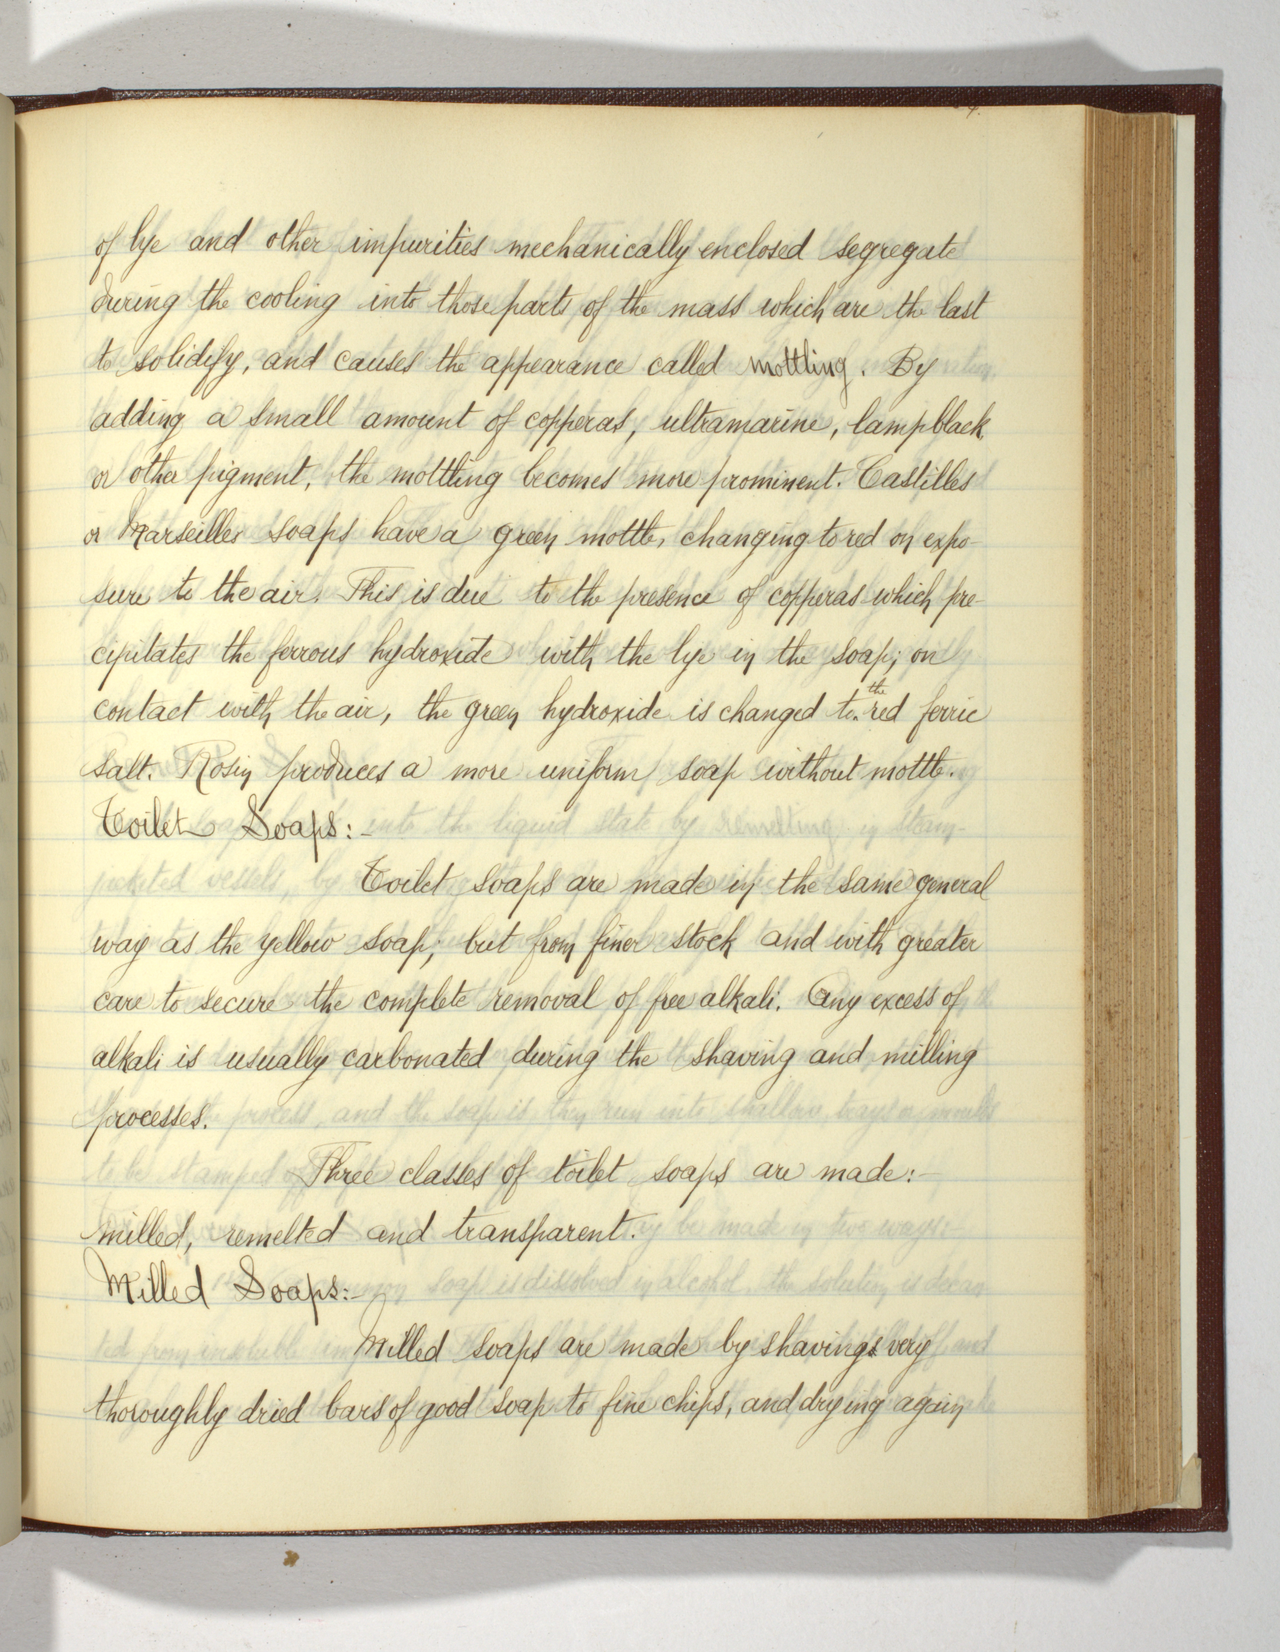 of lye and other impurities mechanically enclosed segregate
during the cooling into those parts of the mass which are the last
to solidify, and causes the appearance called mottling. By
adding a small amount of copperas, ultramarine, lampblack
or other pigment, the mottling becomes more prominent. Castilles
or Marseilles soaps have a green mottle, changing to red on expo-
sure to the air. This is due to the presence of copperas which pre-
cipitates the ferrous hydroxide with the lye in the soap; on
contact with the air, the green hydroxide is changed to the red ferric
salt. Rosin produces a more uniform soap without mottle.
Toilet Soaps:-
Toilet soaps are made in the same general
way as the yellow soap; but from finer stock and with greater
care to secure the complete removal of free alkali. Any excess of
alkali is usually carbonated during the shaving and milling
processes.
Three classes of toilet soaps are made:-
milled, remelted and transparent.
Milled Soaps:-
Milled soaps are made by shavings very
thoroughly dried bars of good soap to fine chips, and drying again